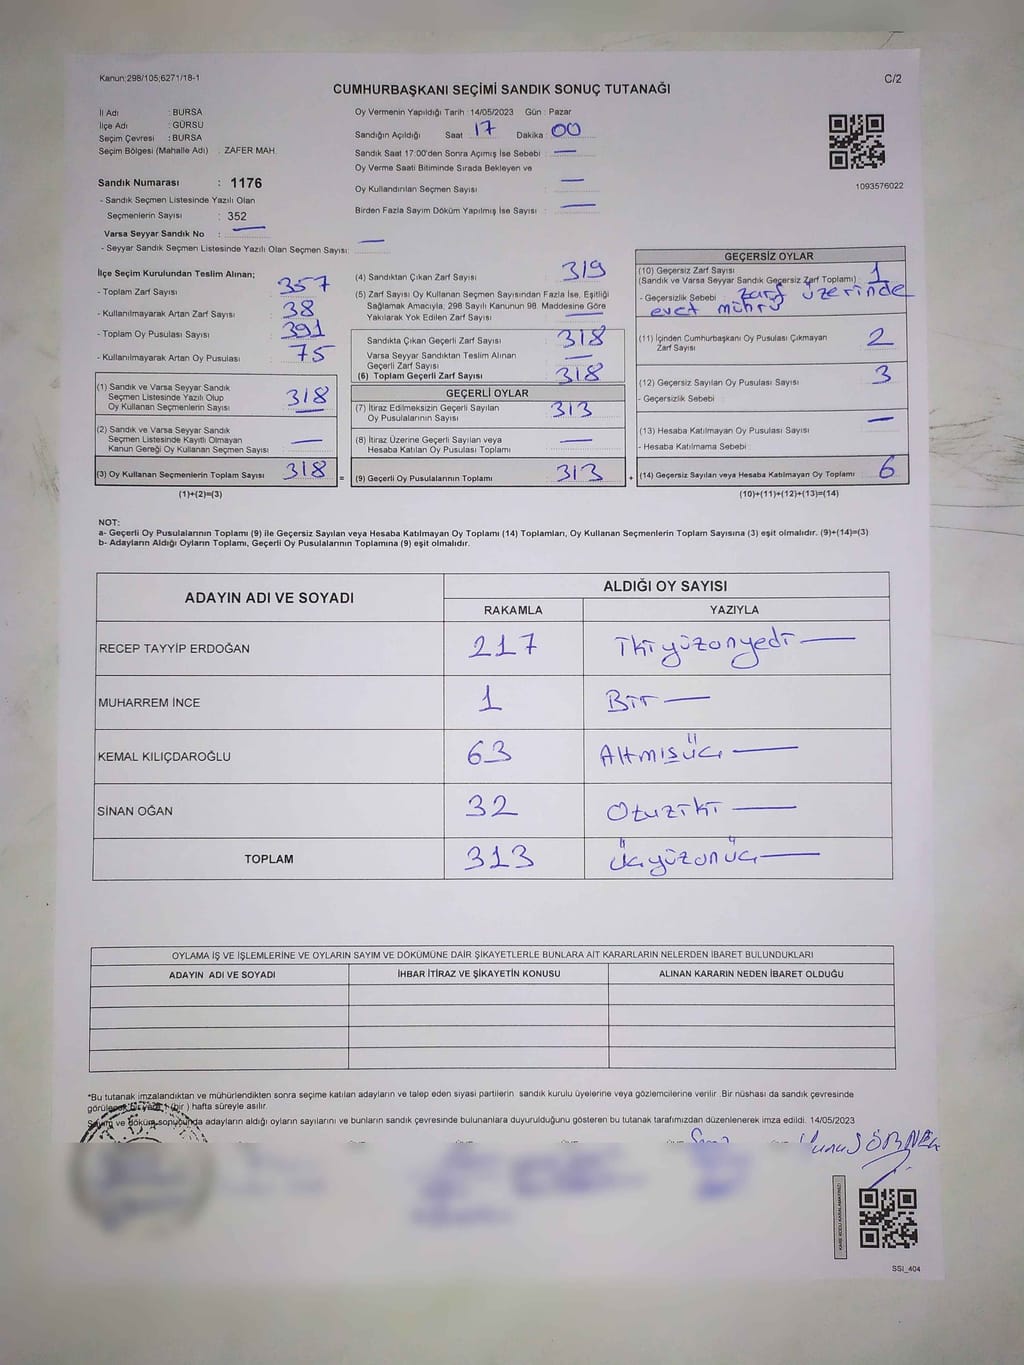 Kanun;298/105;6271/18-1
C/2
CUMHURBAŞKANI SEÇİMİ SANDIK SONUÇ TUTANAĞI
İl Adı : BURSA
İlçe Adı : GÜRSU
Seçim Çevresi : BURSA
Seçim Bölgesi (Mahalle Adı) : ZAFER MAH.
Sandık Numarası : 1176
- Sandık Seçmen Listesinde Yazılı Olan
Seçmenlerin Sayısı : 352
Varsa Seyyar Sandık No : —
- Seyyar Sandık Seçmen Listesinde Yazılı Olan Seçmen Sayısı: —
Oy Vermenin Yapıldığı Tarih :14/05/2023 Gün : Pazar
Sandığın Açıldığı Saat 17 Dakika 00
Sandık Saat 17:00'den Sonra Açımış İse Sebebi : —
Oy Verme Saati Bitiminde Sırada Bekleyen ve
Oy Kullandırılan Seçmen Sayısı : —
Birden Fazla Sayım Döküm Yapılmış İse Sayısı : —
1093576022
İlçe Seçim Kurulundan Teslim Alınan;
- Toplam Zarf Sayısı : 357
- Kullanılmayarak Artan Zarf Sayısı : 38
- Toplam Oy Pusulası Sayısı : 391
- Kullanılmayarak Artan Oy Pusulası : 75
(1) Sandık ve Varsa Seyyar Sandık
Seçmen Listesinde Yazılı Olup
Oy Kullanan Seçmenlerin Sayısı : 318
(2) Sandık ve Varsa Seyyar Sandık
Seçmen Listesinde Kayıtlı Olmayan
Kanun Gereği Oy Kullanan Seçmen Sayısı : —
(3) Oy Kullanan Seçmenlerin Toplam Sayısı : 318
(1)+(2)=(3)
(4) Sandıktan Çıkan Zarf Sayısı : 319
(5) Zarf Sayısı Oy Kullanan Seçmen Sayısından Fazla İse, Eşitliği
Sağlamak Amacıyla, 298 Sayılı Kanunun 98. Maddesine Göre
Yakılarak Yok Edilen Zarf Sayısı : —
Sandıkta Çıkan Geçerli Zarf Sayısı : 318
Varsa Seyyar Sandıktan Teslim Alınan
Geçerli Zarf Sayısı : —
(6) Toplam Geçerli Zarf Sayısı : 318
GEÇERLİ OYLAR
(7) İtiraz Edilmeksizin Geçerli Sayılan
Oy Pusulalarının Sayısı : 313
(8) İtiraz Üzerine Geçerli Sayılan veya
Hesaba Katılan Oy Pusulası Toplamı : —
= (9) Geçerli Oy Pusulalarının Toplamı : 313
GEÇERSİZ OYLAR
(10) Geçersiz Zarf Sayısı
(Sandık ve Varsa Seyyar Sandık Geçersiz Zarf Toplamı) : 1
- Geçersizlik Sebebi : Zarf üzerinde
evet mührü
(11) İçinden Cumhurbaşkanı Oy Pusulası Çıkmayan
Zarf Sayısı : 2
(12) Geçersiz Sayılan Oy Pusulası Sayısı : 3
- Geçersizlik Sebebi :
(13) Hesaba Katılmayan Oy Pusulası Sayısı : —
- Hesaba Katılmama Sebebi :
+ (14) Geçersiz Sayılan veya Hesaba Katılmayan Oy Toplamı : 6
(10)+(11)+(12)+(13)=(14)
NOT:
a- Geçerli Oy Pusulalarının Toplamı (9) ile Geçersiz Sayılan veya Hesaba Katılmayan Oy Toplamı (14) Toplamları, Oy Kullanan Seçmenlerin Toplam Sayısına (3) eşit olmalıdır. (9)+(14)=(3)
b- Adayların Aldığı Oyların Toplamı, Geçerli Oy Pusulalarının Toplamına (9) eşit olmalıdır.
ADAYIN ADI VE SOYADI ALDIĞI OY SAYISI
RAKAMLA YAZIYLA
RECEP TAYYİP ERDOĞAN 217 İkiyüzonyedi —
MUHARREM İNCE 1 Bir —
KEMAL KILIÇDAROĞLU 63 Altmışüç —
SİNAN OĞAN 32 Otuziki —
TOPLAM 313 Üçyüzonüç —
OYLAMA İŞ VE İŞLEMLERİNE VE OYLARIN SAYIM VE DÖKÜMÜNE DAİR ŞİKAYETLERLE BUNLARA AİT KARARLARIN NELERDEN İBARET BULUNDUKLARI
ADAYIN ADI VE SOYADI İHBAR İTİRAZ VE ŞİKAYETİN KONUSU ALINAN KARARIN NEDEN İBARET OLDUĞU
*Bu tutanak imzalandıktan ve mühürlendikten sonra seçime katılan adayların ve talep eden siyasi partilerin sandık kurulu üyelerine veya gözlemcilerine verilir. Bir nüshası da sandık çevresinde
görülecek bir yere 1 (bir ) hafta süreyle asılır.
Sayım ve döküm sonucunda adayların aldığı oyların sayılarını ve bunların sandık çevresinde bulunanlara duyurulduğunu gösteren bu tutanak tarafımızdan düzenlenerek imza edildi. 14/05/2023
SSI_404